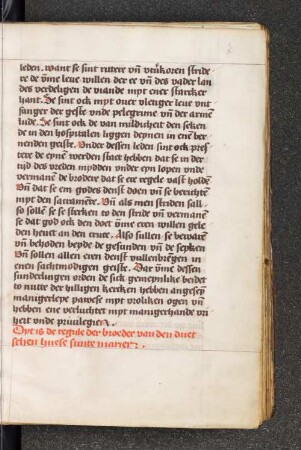 leden. want se sint rutere vn̄ vtuͤkoren stride
re de vm̄e leue willen der ee vn̄ des vader lan
des verdeligen de viande myt ener starcker
hant. Se sint ock myt ouer vleniger leue vnt
fanger der geste vnde pelegrime vn̄ der arme
lude. Se sint ock de van mildicheit den seken
de in den hospitalen liggen deynen in eme ber
nenden geiste. Vnder dessen leden sint ock pres
tere de eyne werden stact hebben dat se in der
tijd des vreden mydden vnder eyn lopen vnde
vermane de brodere dat se ere regele vast holde
Vn̄ dat se em godes denst doen vn̄ se berichte
myt den sacramete. Vn̄ als men striden sall
so solle se se sterken to den stride vn̄ vermane
se dat god ock den doet vm̄e eren willen gele
den heuet an den cruce. Also sullen se beware
vn̄ behoden beyde de gesunden vn̄ de seyken
Vn̄ sollen allen eren denst vullenbregen in
enen sachtmodigen geiste. Dar vm̄e dessen
sunderlingen orden de sick gemeynlike beidet
to nutte der hilligen kercken hebben angesey
manigerleye pawese myt vroliken ogen vn̄
hebben ene verluchtet myt manigerhande vri
heit vnde priuilegien.
Dyt is de regule der broeder van den duet
schen huese sunte marien.